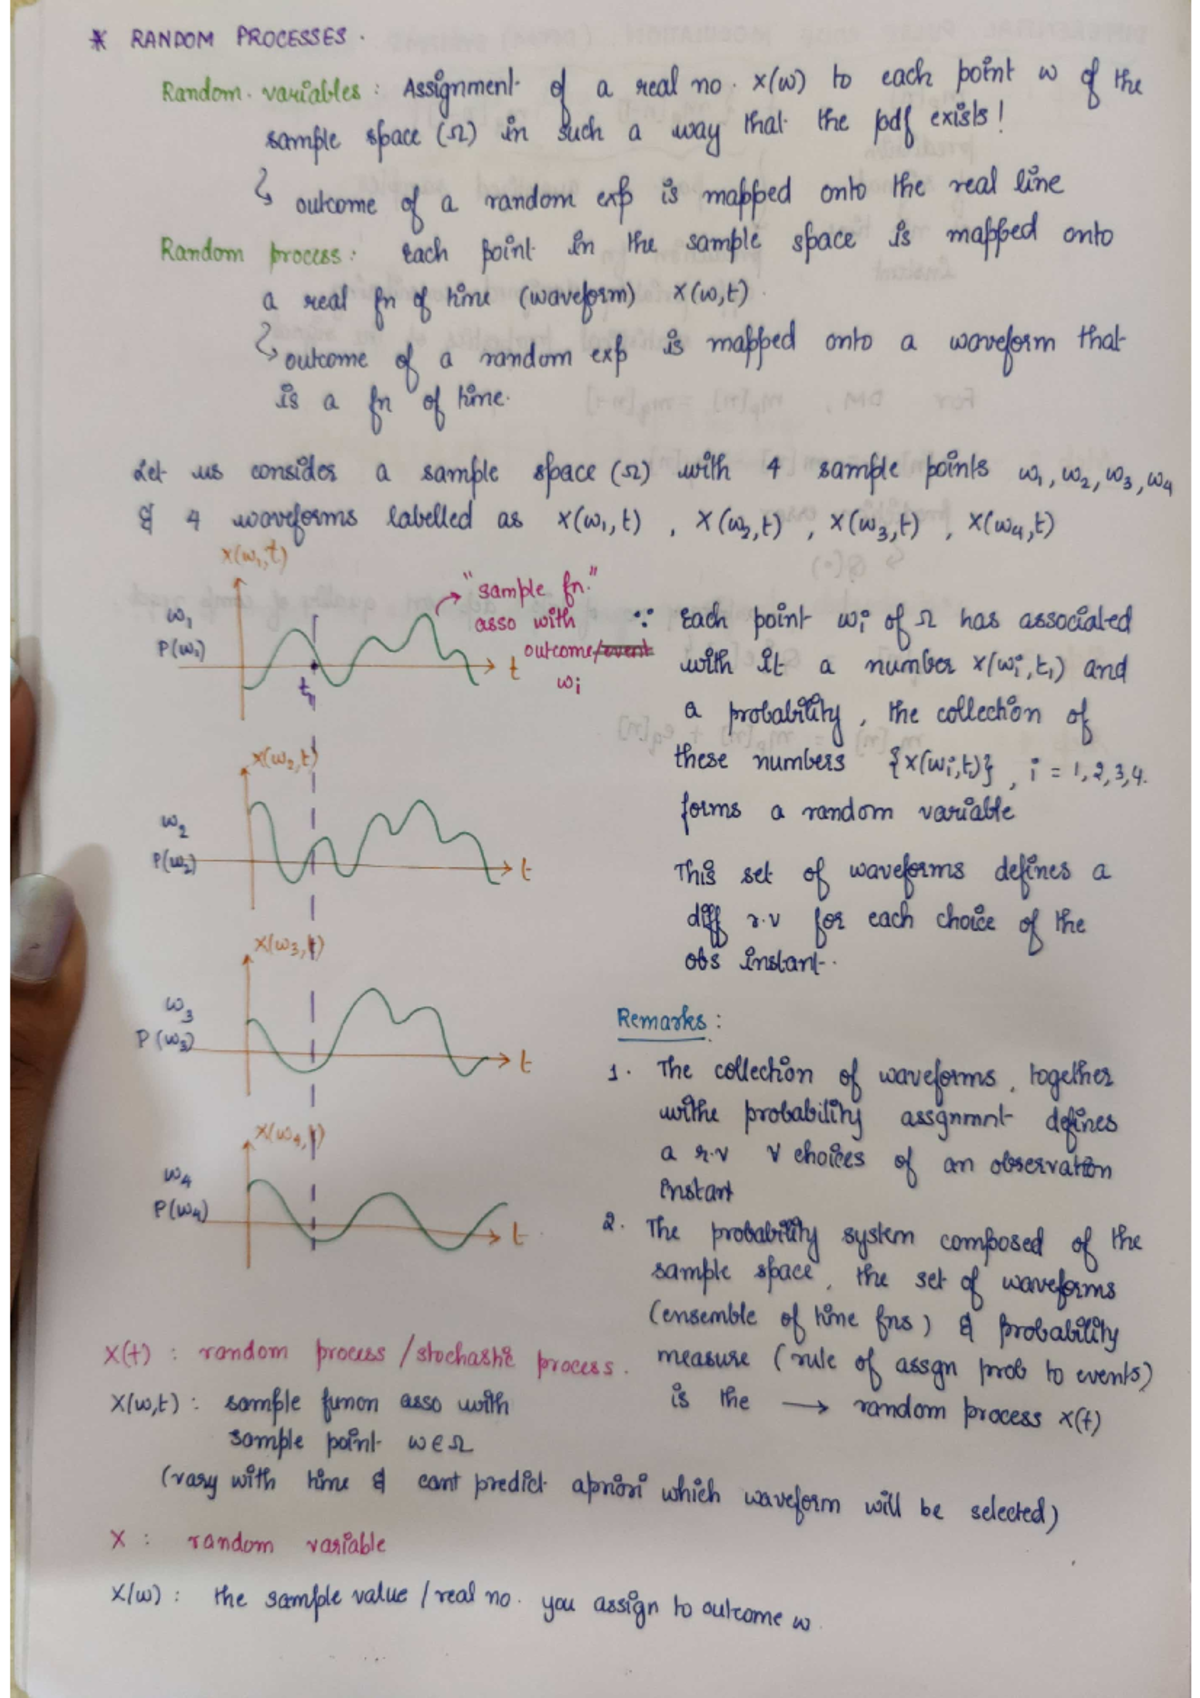 * RANDOM PROCESSES.
Random variables : Assignment of a real no. X(ω) to each point ω of the
sample space (Ω) in such a way that the pdf exists!
↳ outcome of a random exp is mapped onto the real line
Random process: Each point in the sample space is mapped onto
a real fn of time (waveform) X(ω,t).
↳ outcome of a random exp is mapped onto a waveform that
is a fn of time.
Let us consider a sample space (Ω) with 4 sample points ω1, ω2, ω3, ω4
& 4 waveforms labelled as X(ω1,t) , X(ω2,t) , X(ω3,t) , X(ω4,t)
X(ω1,t)
ω1
P(ω1)
t1
t
→ "sample fn."
asso with
outcome/event
ωi
X(ω2,t)
ω2
P(ω2)
t
X(ω3,t)
ω3
P(ω3)
t
X(ω4,t)
ω4
P(ω4)
t
∵ Each point ωi of Ω has associated
with it a number X(ωi,t1) and
a probability, the collection of
these numbers {X(ωi,t)}, i = 1,2,3,4.
forms a random variable
This set of waveforms defines a
diff r.v for each choice of the
obs instant.
Remarks :
1. The collection of waveforms, together
withe probability assgnmnt defines
a r.v ∀ choices of an observation
instant
2. The probability system composed of the
sample space, the set of waveforms
(ensemble of time fns) & probability
measure (rule of assgn prob to events)
is the → random process X(t)
X(t) : random process / stochastic process.
X(ω,t) : sample funon asso with
sample point ω∈Ω
(vary with time & cant predict apriori which waveform will be selected)
X : random variable
X(ω) : the sample value / real no. you assign to outcome ω.